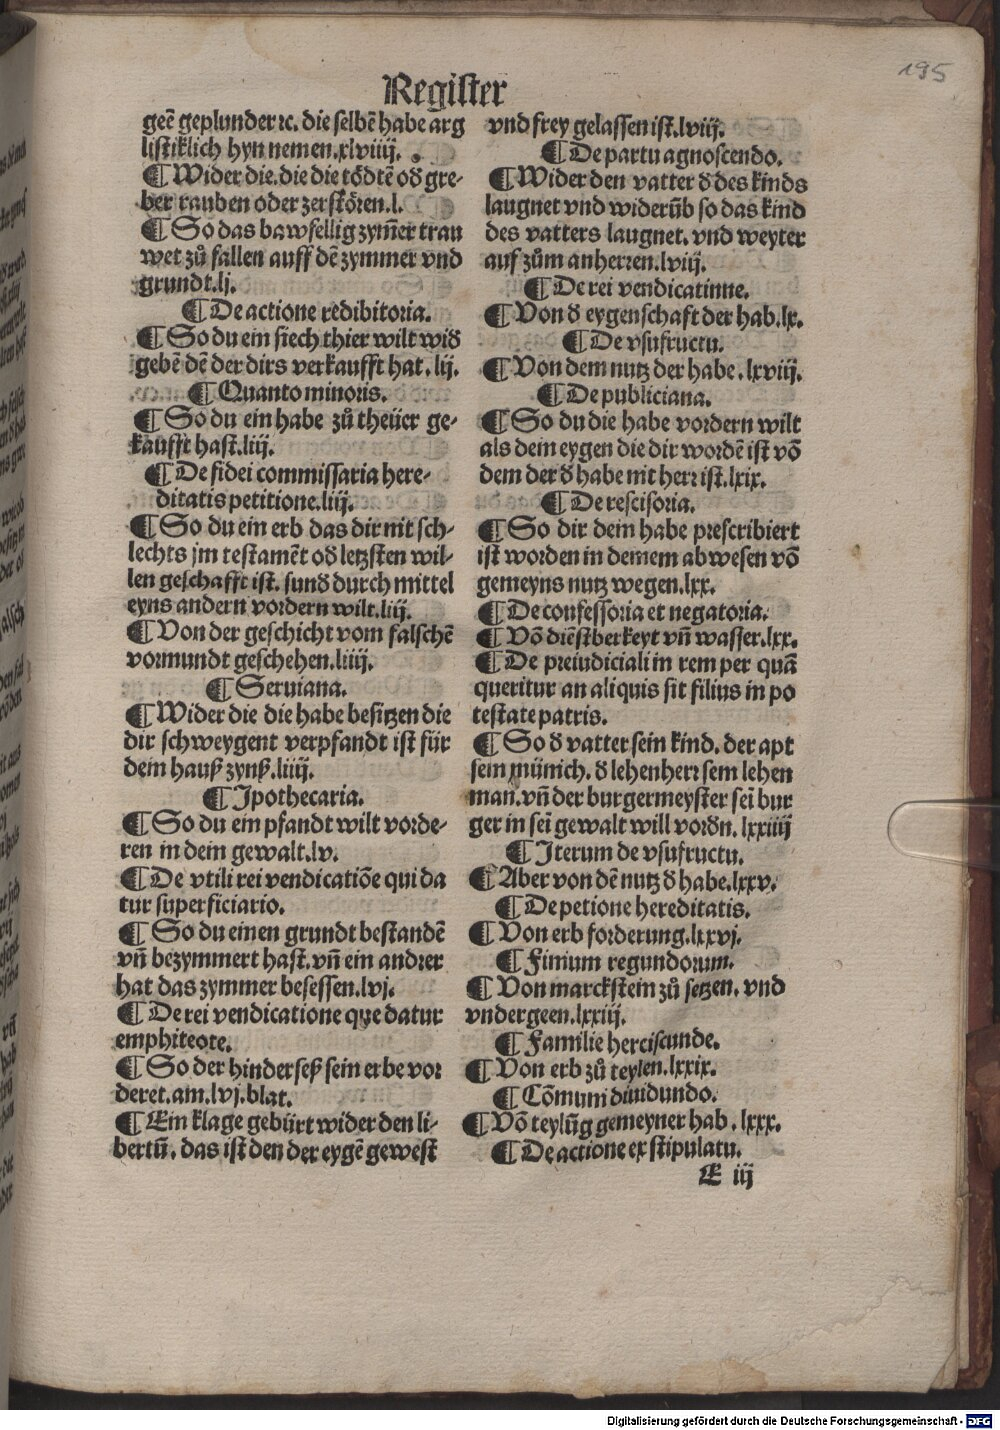 195
Register
geē geplunder ꝛc. die selbē habe arg
listiklich hyn nemen.xlviiij.
¶ Wider die. die die tödtē oð gre-
ber rauben oder zerstören.l.
¶ So das bawfellig zym̄er trau
wet zů fallen auff dē zymmer vnd
grundt.lj.
¶ De actione redibitoria.
¶ So du ein siech thier wilt wið
gebē dē der dirs verkaufft hat.lij.
¶ Quanto minoris.
¶ So du ein habe zů theüer ge-
kaufft hast.liij.
¶ De fidei commissaria here-
ditatis petitione.liij.
¶ So du ein erb das dir nit sch-
lechts jm testamēt oð letzsten wil-
len geschafft ist. sunð durch mittel
eyns andern vordern wilt.liij.
¶ Von der geschicht vom falschē
vormundt geschehen.liiij.
¶ Seruiana.
¶ Wider die die habe besitzen die
dir schweygent verpfandt ist für
dem hauß zynß.liiij.
¶ Ipothecaria.
¶ So du ein pfandt wilt vorde-
ren in dein gewalt.lv.
¶ De vtili rei vendicatiōe qui da
tur superficiario.
¶ So du einen grundt bestandē
vn̄ bezymmert hast. vn̄ ein andrer
hat das zymmer besessen.lvj.
¶ De rei vendicatione que datur
emphiteote.
¶ So der hinderseß sein erbe vor
deret.am.lvj.blat.
¶ Ein klage gebürt wider den li-
bertū. das ist den der eygē gewest
vnd frey gelassen ist.lviij.
¶ De partu agnoscendo.
¶ Wider den vatter ð des kinds
laugnet vnd widerūb so das kind
des vatters laugnet. vnd weyter
auf zům anherren.lviij.
¶ De rei vendicatinne.
¶ Von ð eygenschaft der hab.lx.
¶ De vsufructu.
¶ Von dem nutz der habe.lxviij.
¶ De publiciana.
¶ So du die habe vordern wilt
als dein eygen die dir wordē ist vō
dem der ð habe nit herr ist.lxix.
¶ De rescisoria.
¶ So dir dein habe prescribiert
ist worden in deinem abwesen vō
gemeyns nutz wegen.lxx.
¶ De confessoria et negatoria.
¶ Vō diēstberkeyt vn̄ wasser.lxx.
¶ De preiudiciali in rem per quā
queritur an aliquis sit filius in po
testate patris.
¶ So ð vatter sein kind. der apt
sein münich. ð lehenherr sein lehen
man. vn̄ der burgermeyster sei bur
ger in sei gewalt will vordn.lxxiiij
¶ Iterum de vsufructu.
¶ Aber von dē nutz ð habe.lxxv.
¶ De petione hereditatis.
¶ Von erb forderung.lxxvj.
¶ Finium regundorum.
¶ Von marckstein zů setzen. vnd
vndergeen.lxxiij.
¶ Familie herciscunde.
¶ Von erb zů teylen.lxxix.
¶ Cōmum diuidundo.
¶ Vō teylūg gemeyner hab.lxxx.
¶ De actione ex stipulatu.
E iij
Digitalisierung gefördert durch die Deutsche Forschungsgemeinschaft - DFG